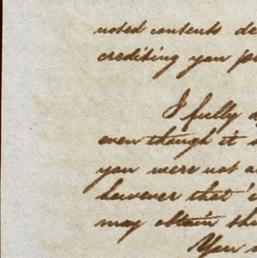 noted contents de
crediting you pr
I fully a
even though it
you were not a
however that
may obtain thi
You